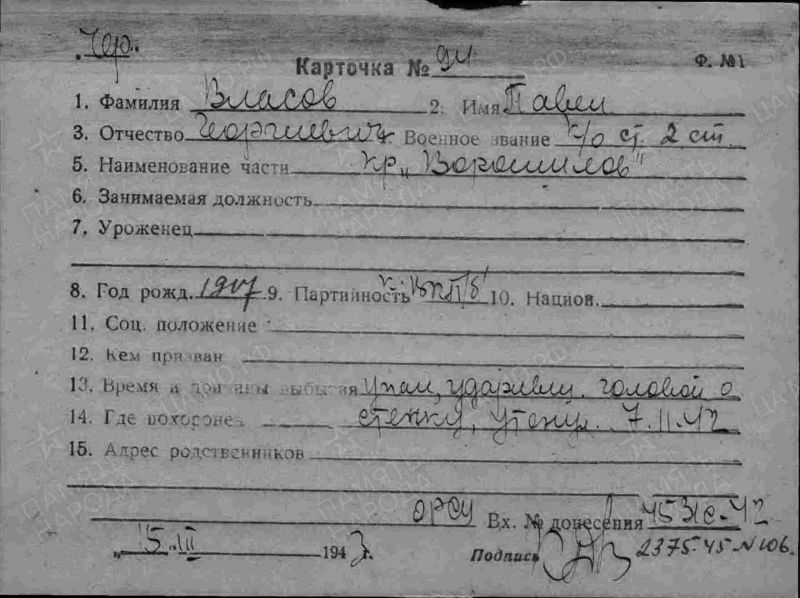 Чер.
Карточка № 94 Ф. №1
1. Фамилия Власов 2. Имя Павел
3. Отчество Георгиевич 4. Военное звание к/о ст. 2 ст.
5. Наименование части кр. „Ворошилов"
6. Занимаемая должность
7. Уроженец
8. Год рожд. 1907 9. Партийность к. ВКП/б/ 10. Национ.
11. Соц. положение
12. Кем призван
13. Время и причины выбытия упал, ударивш. головой о
14. Где похоронен стенку, утонул. 7.11.42
15. Адрес родственников
ОРСУ Вх. № донесения 4531с-42
„15" III 1943 г. Подпись 2375-45-N106.